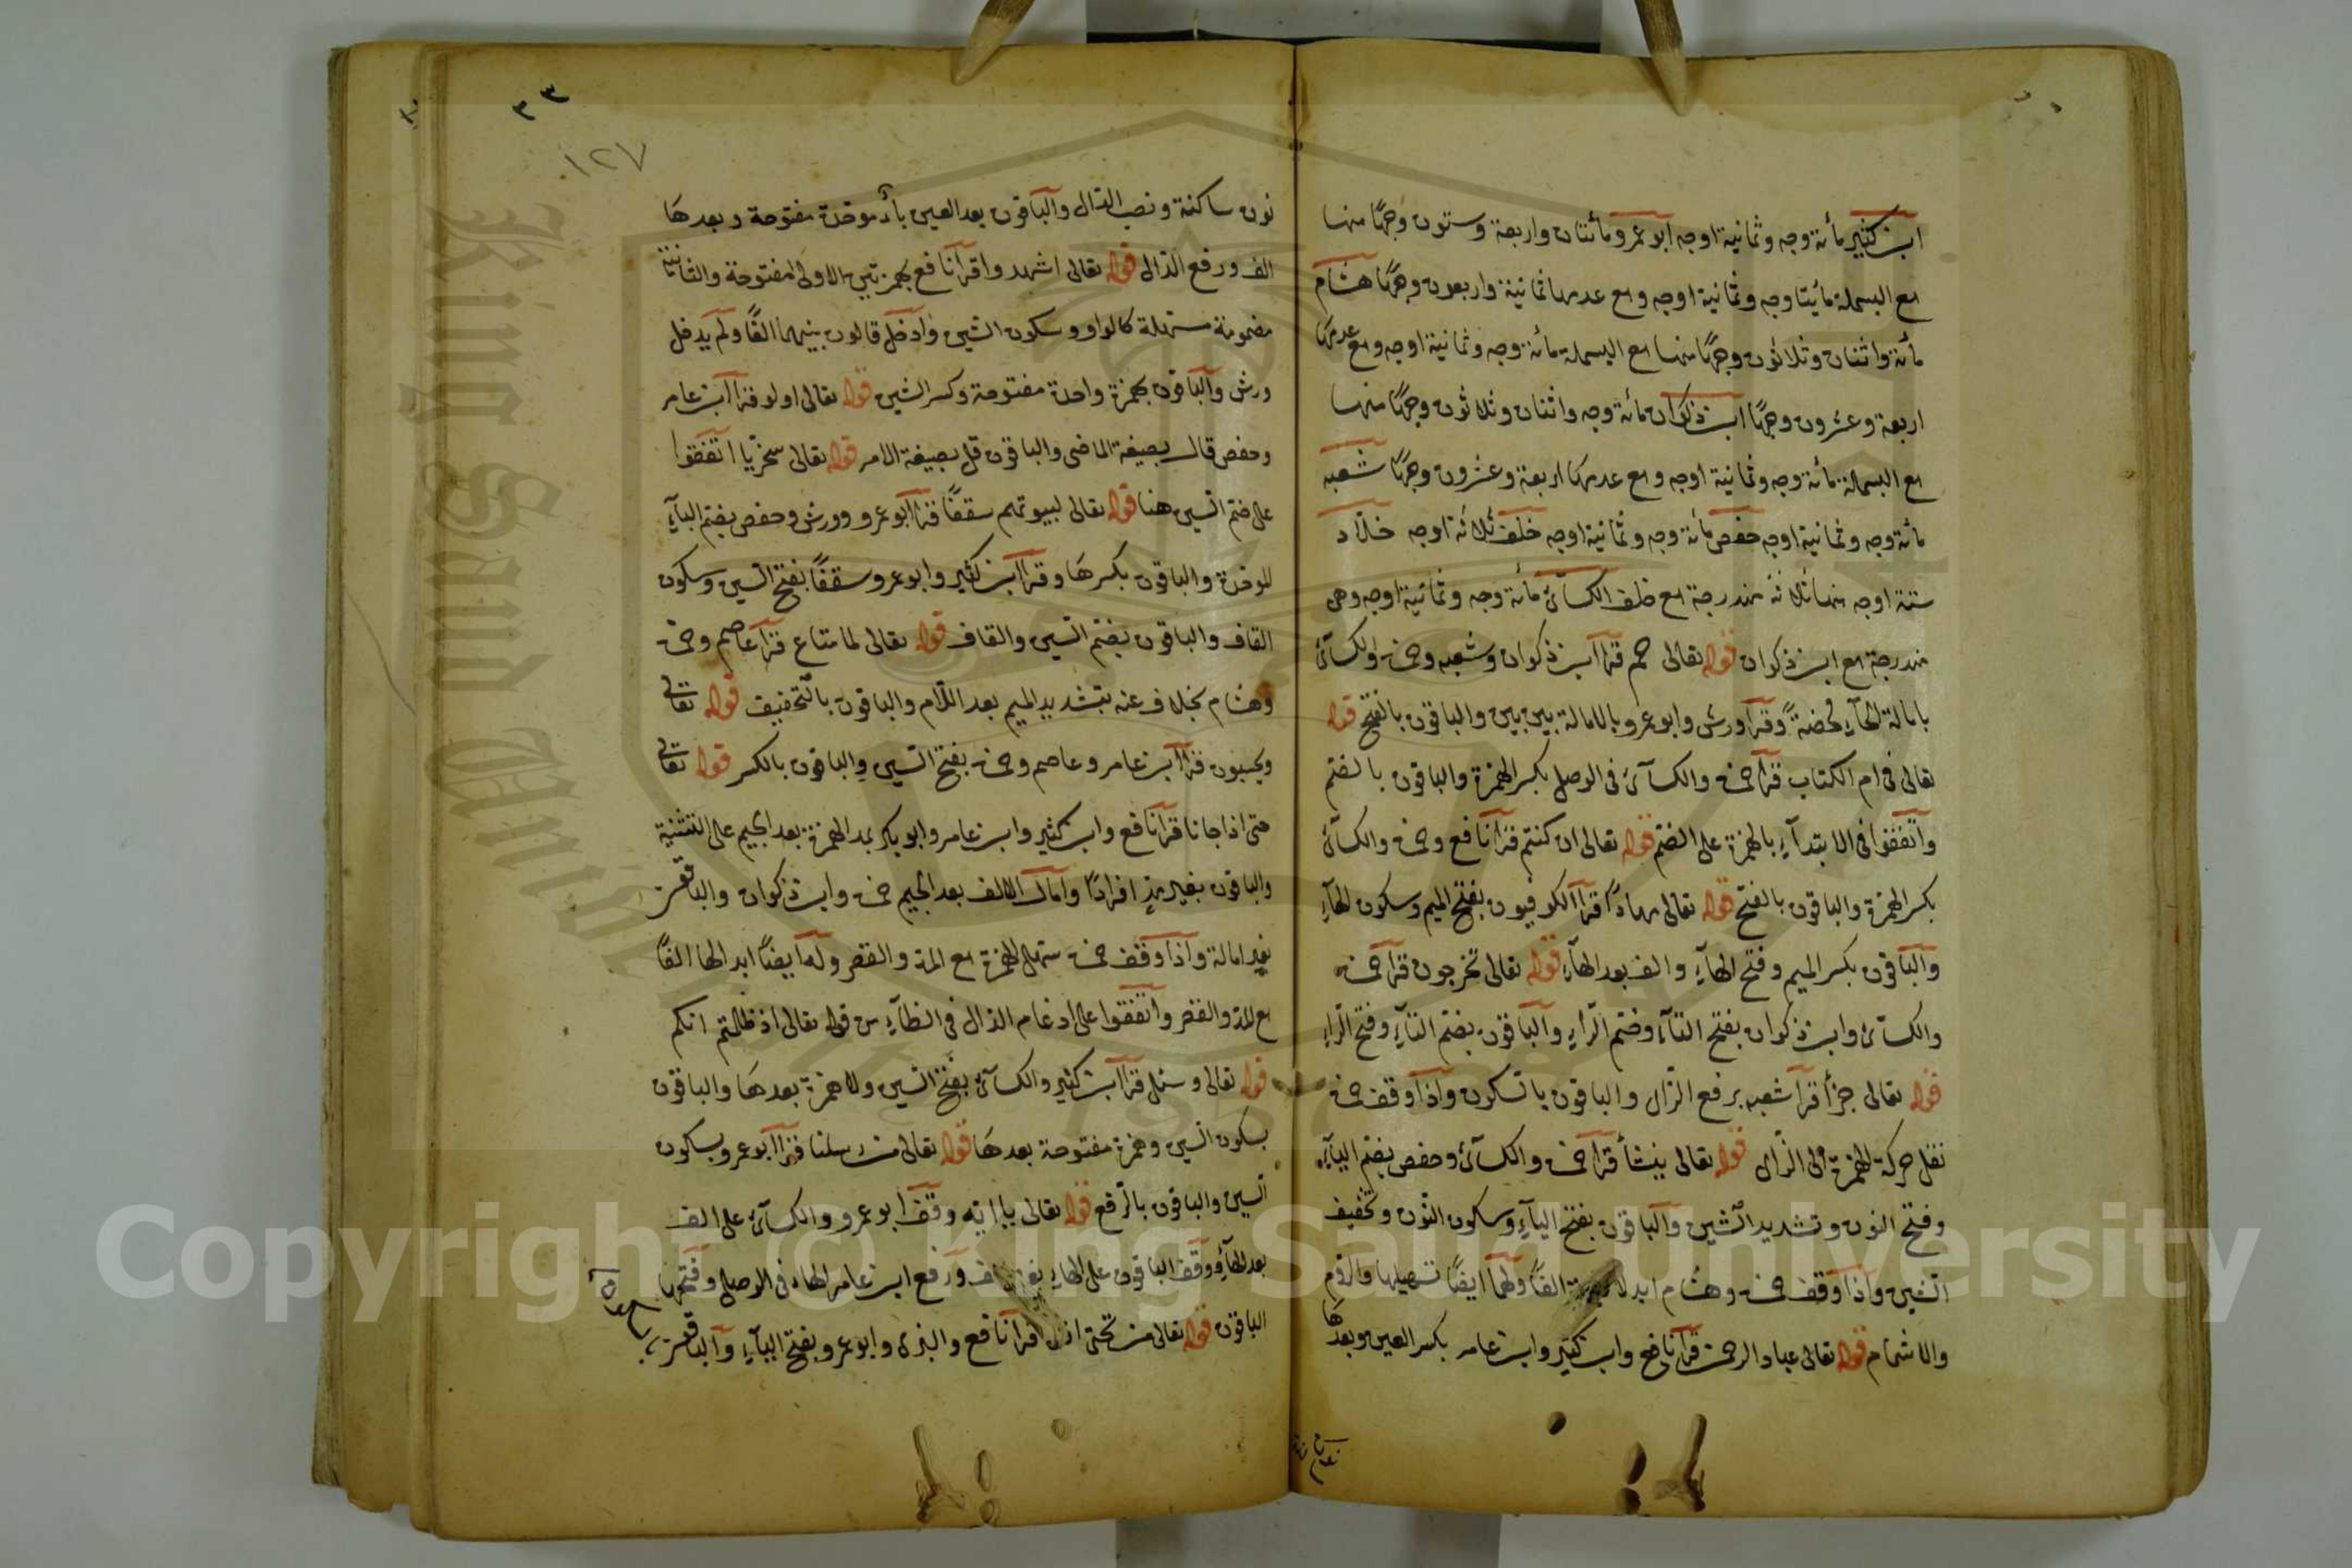 ابن كثير مائة وجه وثمانية اوجه ابو عمرو مائتان واربعة وستون وجها منها
مع البسملة مائتا وجه وثمانية اوجه ومع عدمها ثمانية واربعون وجها هشام
مائة واثنان وثلاثون وجها منها مع البسملة مائة وجه وثمانية اوجه ومع عدمها
اربعة وعشرون وجها ابن ذكوان مائة وجه واثنان وثلاثون وجها منها
مع البسملة مائة وجه وثمانية اوجه ومع عدمها اربعة وعشرون وجها شعبه
مائة وجه وثمانية اوجه حفص مائة وجه وثمانية اوجه خلف ثلاثة اوجه خلاد
ستة اوجه منها ثلاثة مندرجة مع خلف الكسائ مائة وجه وثمانية اوجه وهى
مندرجة مع ابن ذكوان قوله تعالى حم قرا ابن ذكوان وشعبه وحمزة والكسائ
بامالة الحآء محضة وقرا ورش وابو عمرو بالامالة بين بين والباقون بالفتح قوله
تعالى فى ام الكتاب قرا حمزة والكسائ فى الوصل بكسر الهمزة والباقون بالضم
واتفقوا فى الابتدآء بالهمزة على الضم قوله تعالى ان كنتم قرا نافع وحمزة والكسائ
بكسر الهمزة والباقون بالفتح قوله تعالى مهادا قرا الكوفيون بفتح الميم وسكون الهآء
والباقون بكسر الميم وفتح الهآء والف بعد الهآء قوله تعالى تخرجون قرا حمزة
والكسائ وابن ذكوان بفتح التآء وضم الرآء والباقون بضم التآء وفتح الرآء
قوله تعالى جزأ قرا شعبه برفع الزاى والباقون بالسكون واذا وقف حمزة
نقل حركة الهمزة الى الزاى قوله تعالى ينشأ قرا حمزة والكسائ وحفص بضم اليآء
وفتح النون وتشديد الشين والباقون بفتح اليآء وسكون النون وتخفيف
الشين واذا وقف حمزة وهشام ابدلا الهمزة الفا ولهما ايضا تسهيلها والروم
والاشمام قوله تعالى عباد الرحمن قرا نافع وابن كثير وابن عامر بكسر العين وبعدها
٣٣
١٢٧
نون ساكنة ونصب الدال والباقون بعد العين بآء موحدة مفتوحة وبعدها
الف ورفع الدال قوله تعالى اشهدوا قرا نافع بهمزتين الاولى مفتوحة والثانية
مضمومة مسهلة كالواو وسكون الشين وادخل قالون بينهما الفا ولم يدخل
ورش والباقون بهمزة واحدة مفتوحة وكسر الشين قوله تعالى اولو قرا ابن عامر
وحفص قال بصيغة الماضى والباقون قل بصيغة الامر قوله تعالى سخريا اتفقوا
على ضم السين هنا قوله تعالى لبيوتهم سقفا قرا ابو عمرو وورش وحفص بضم البآء
الموحدة والباقون بكسرها وقرا ابن كثير وابو عمرو سقفا بفتح السين وسكون
القاف والباقون بضم السين والقاف قوله تعالى لما متاع قرا عاصم وحمزة
وهشام بخلاف عنه بتشديد الميم بعد اللام والباقون بالتخفيف قوله تعالى
ويحسبون قرا ابن عامر وعاصم وحمزة بفتح السين والباقون بالكسر قوله تعالى
حتى اذا جانا قرا نافع وابن كثير وابن عامر وابو بكر بمد الهمزة بعد الجيم على التثنية
والباقون بغير مد افرادا وامال الالف بعد الجيم حمزة وابن ذكوان والباقون
بغير امالة واذا وقف حمزة سهل الهمزة مع المد والقصر وله ايضا ابدالها الفا
مع المد والقصر واتفقوا على ادغام الذال فى الظآء من قوله تعالى اذ ظلمتم انكم
قوله تعالى وسئل قرا ابن كثير والكسائ بفتح السين ولا همزة بعدها والباقون
بسكون السين وهمزة مفتوحة بعدها قوله تعالى من رسلنا قرا ابو عمرو بسكون
السين والباقون بالرفع قوله تعالى يا ايه وقف ابو عمرو والكسائ على الف
بعد الهآء ووقف الباقون على الهآء بغير الف ورفع ابن عامر الهاء فى الوصل وفتحها
الباقون قوله تعالى من تحتى افلا قرا نافع والبزى وابو عمرو بفتح اليآء والباقون
King Saud University
1957
Copyright © King Saud University